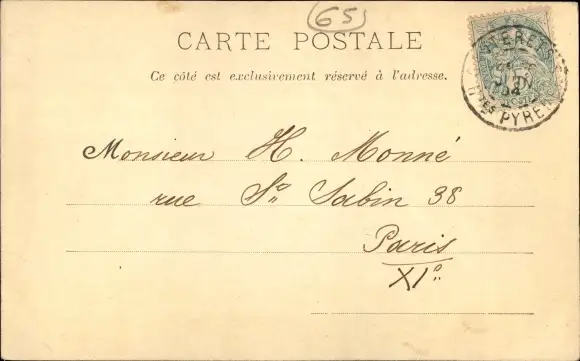 65
CARTE POSTALE
Ce côté est exclusivement réservé à l'adresse.
Htes PYREN
Monsieur H. Monné
rue St Sabin 38
Paris
XIe